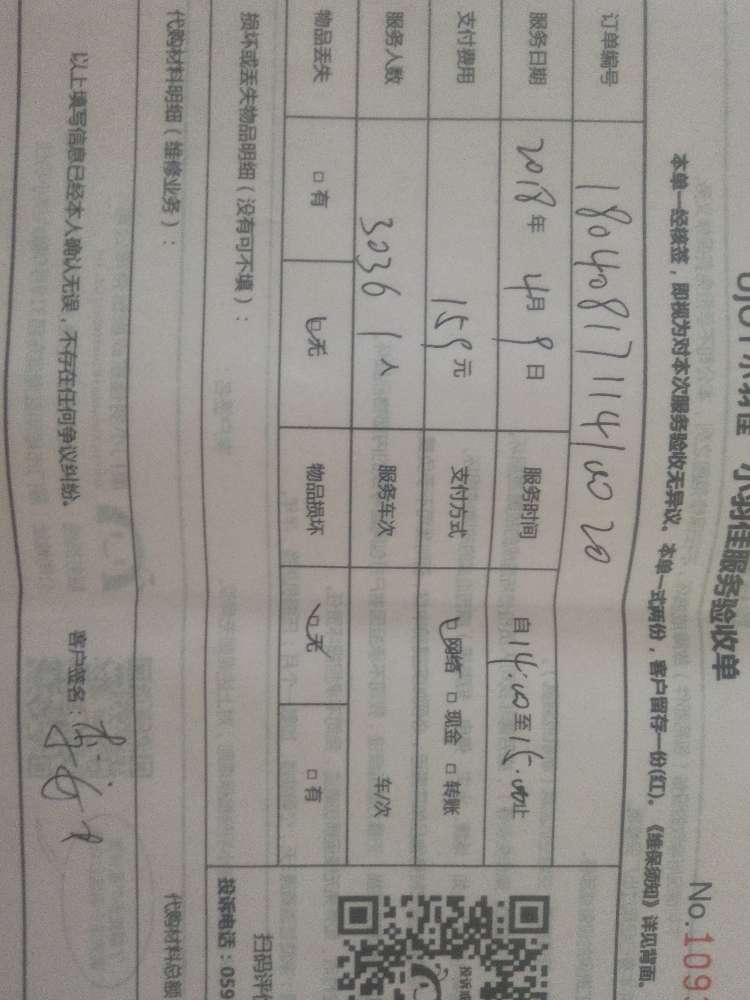 小羽佳服务验收单
No.109
本单一经核签，即视为对本次服务验收无异议。本单一式两份，客户留存一份(红)。《维保须知》详见背面。
订单编号 1804081711410020
服务日期 2018年 4月 9日 服务时间 自14:00至15:00止
支付费用 159元 支付方式 网络 □现金 □转账
服务人数 3036 1人 服务车次 车/次
物品丢失 □有 无 物品损坏 无 □有
损坏或丢失物品明细（没有可不填）：
代购材料明细（维修业务）：
代购材料总额
以上填写信息已经本人确认无误，不存在任何争议纠纷。 客户签名：
投诉电话：059